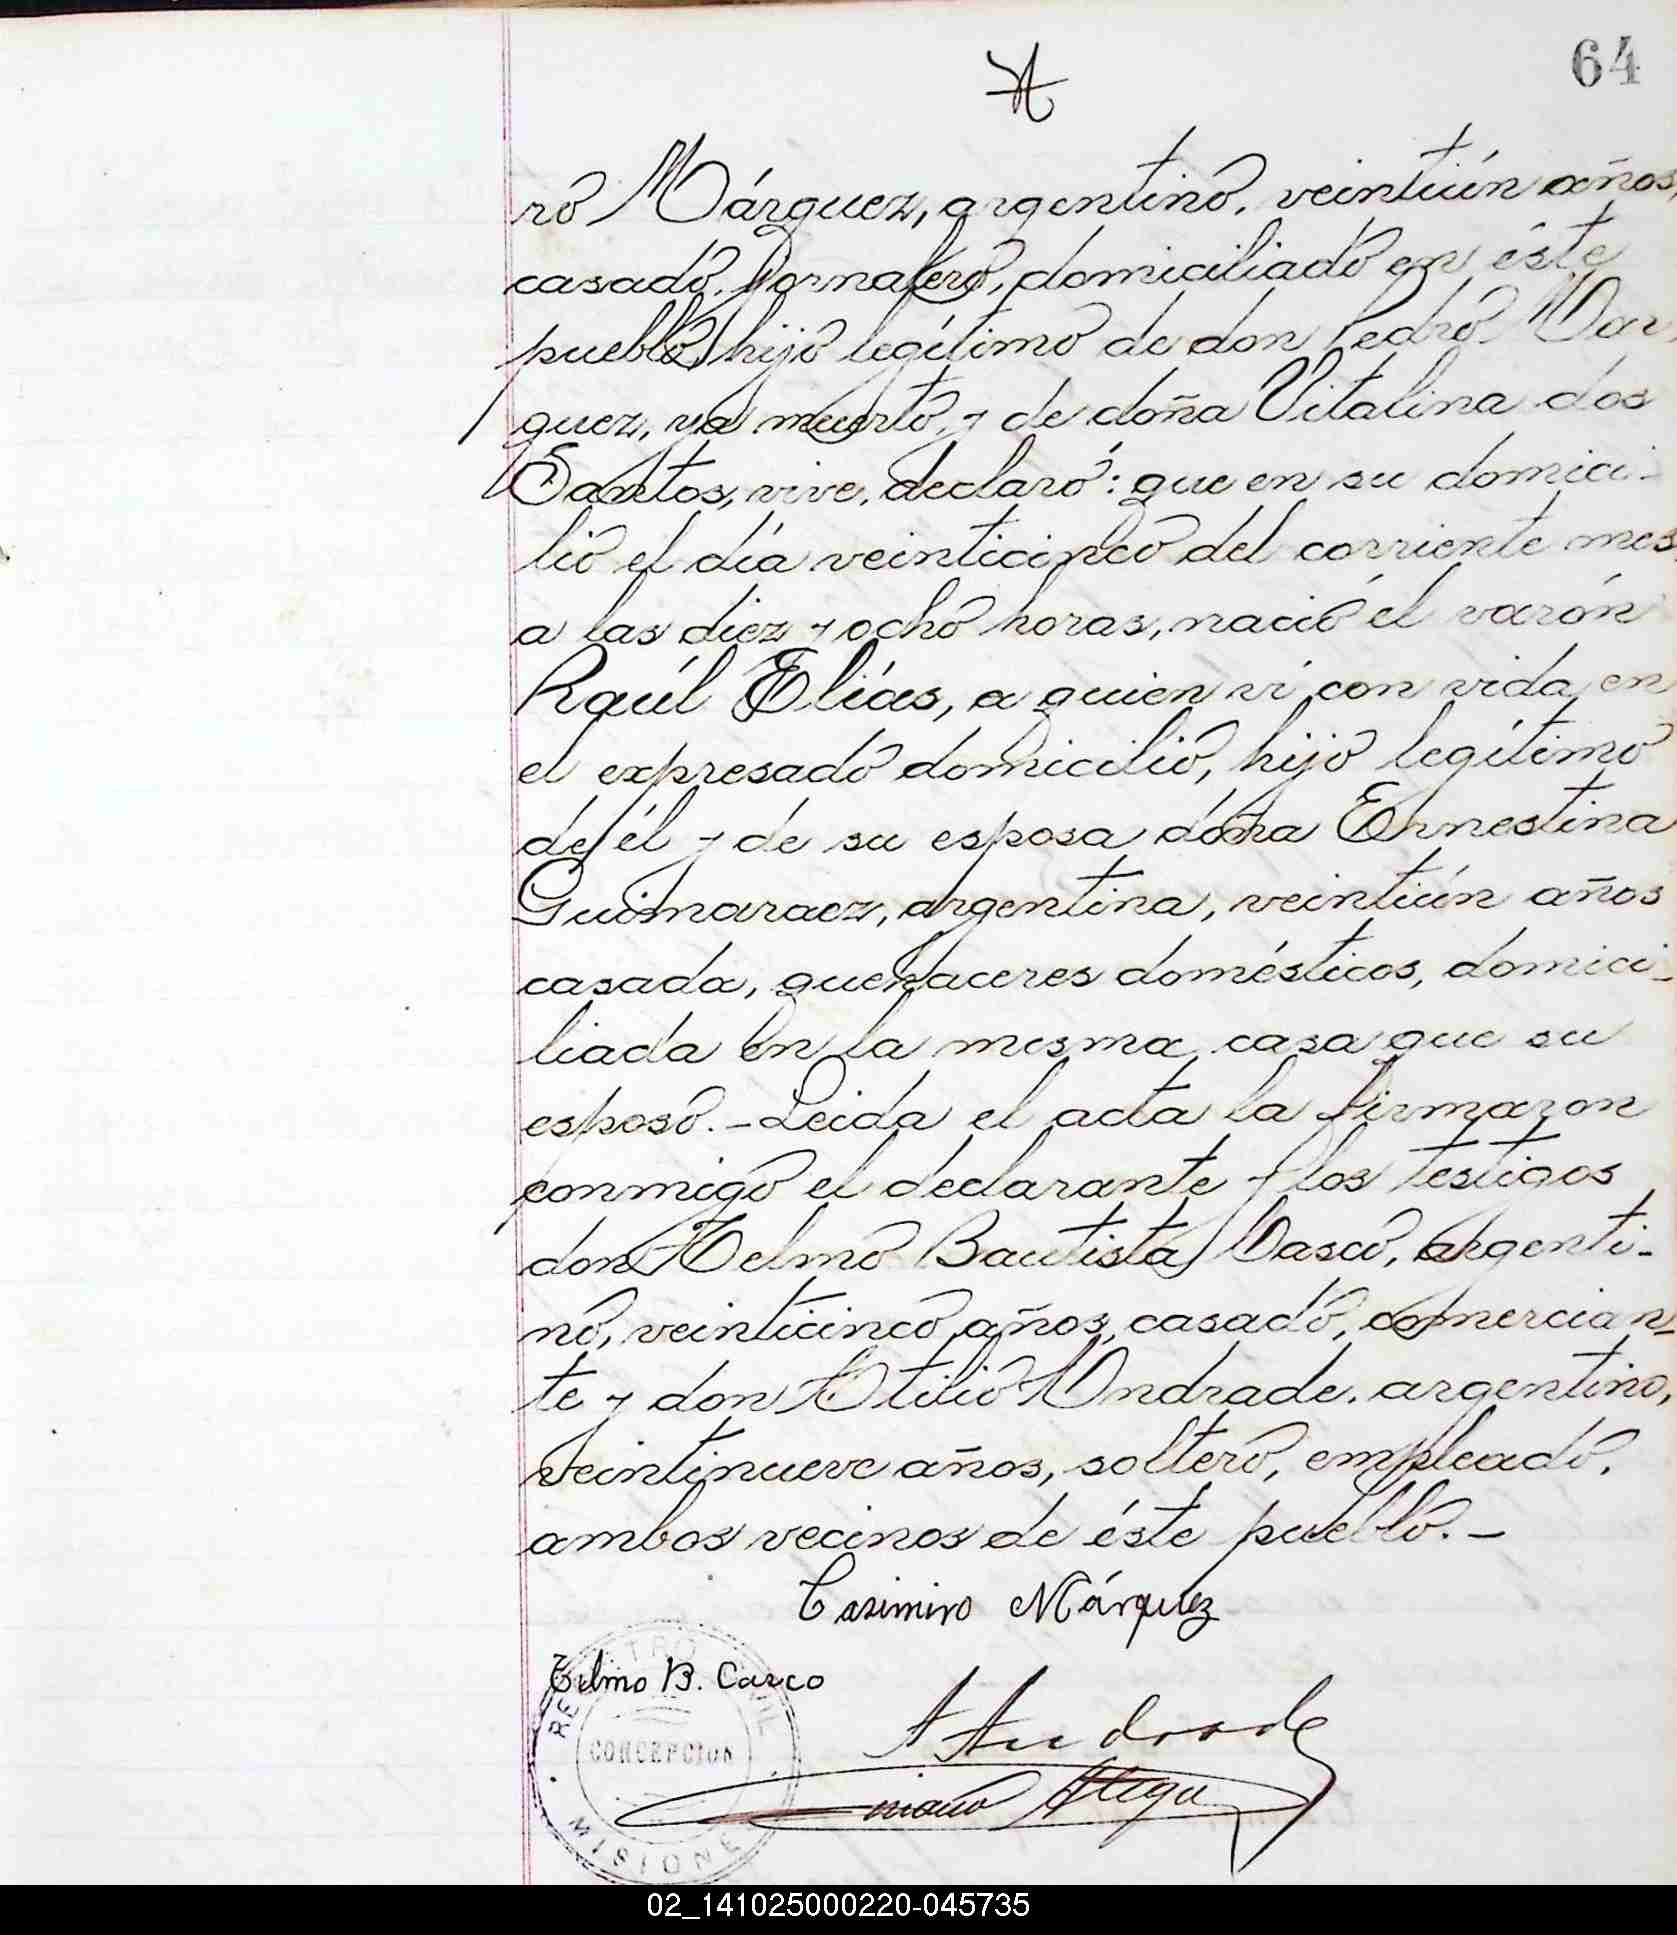 64
ro Márquez, argentino, veintiún años,
casado, jornalero, domiciliado en éste
pueblo, hijo legítimo de don Pedro Már
quez, ya muerto, y de doña Vitalina dos
Santos, vive, declaró: que en su domici-
lio el día veinticinco del corriente mes
a las diez y ocho horas, nació el varón
Raúl Elías, a quien ví con vida en
el expresado domicilio, hijo legítimo
de él y de su esposa doña Ernestina
Guimaraez, argentina, veintiún años
casada, quehaceres domésticos, domici-
liada en la misma casa que su
esposo.- Leida el acta la firmaron
conmigo el declarante y los testigos
don Telmo Bautista Casco, argenti-
no, veinticinco años, casado, comercian-
te y don Atilio Andrade, argentino,
veintinueve años, soltero, empleado,
ambos vecinos de éste pueblo.-
Casimiro Márquez
Telmo B. Casco
A Andrade
REGISTRO CIVIL
CONCEPCION
MISIONES
02_141025000220-045735